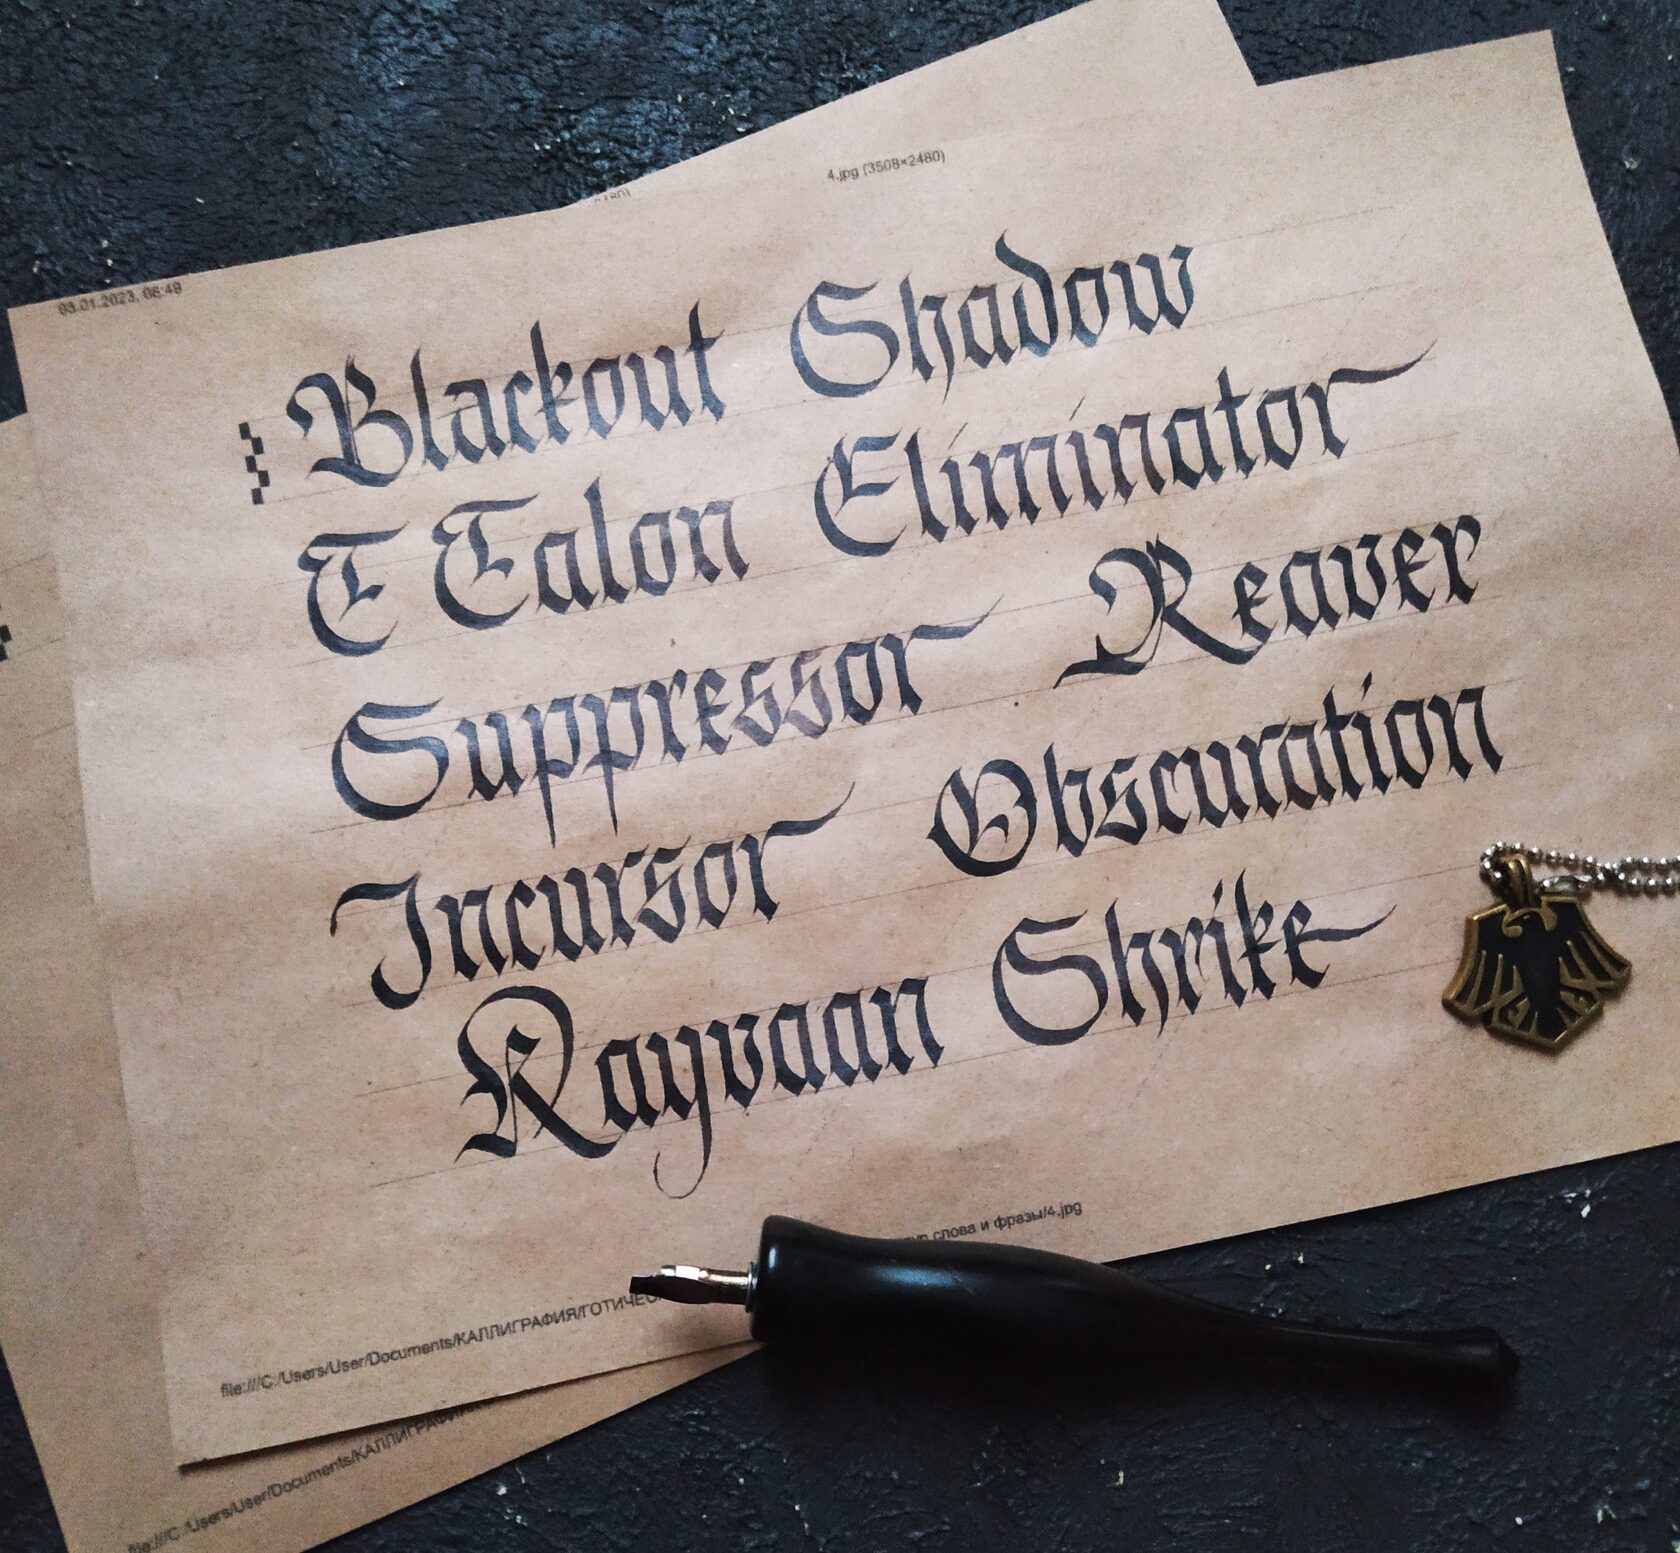 4.jpg (3508×2480)
03.01.2023, 08:49
Blackout Shadow
T Talon Eliminator
Suppressor Reaver
Incursor Obscuration
Kayvaan Shrike
слова и фразы/4.jpg
file:///C:/Users/User/Documents/КАЛЛИГРАФИЯ/ГОТИЧЕС
file:///C:/Users/User/Documents/КАЛЛИГРАФИ